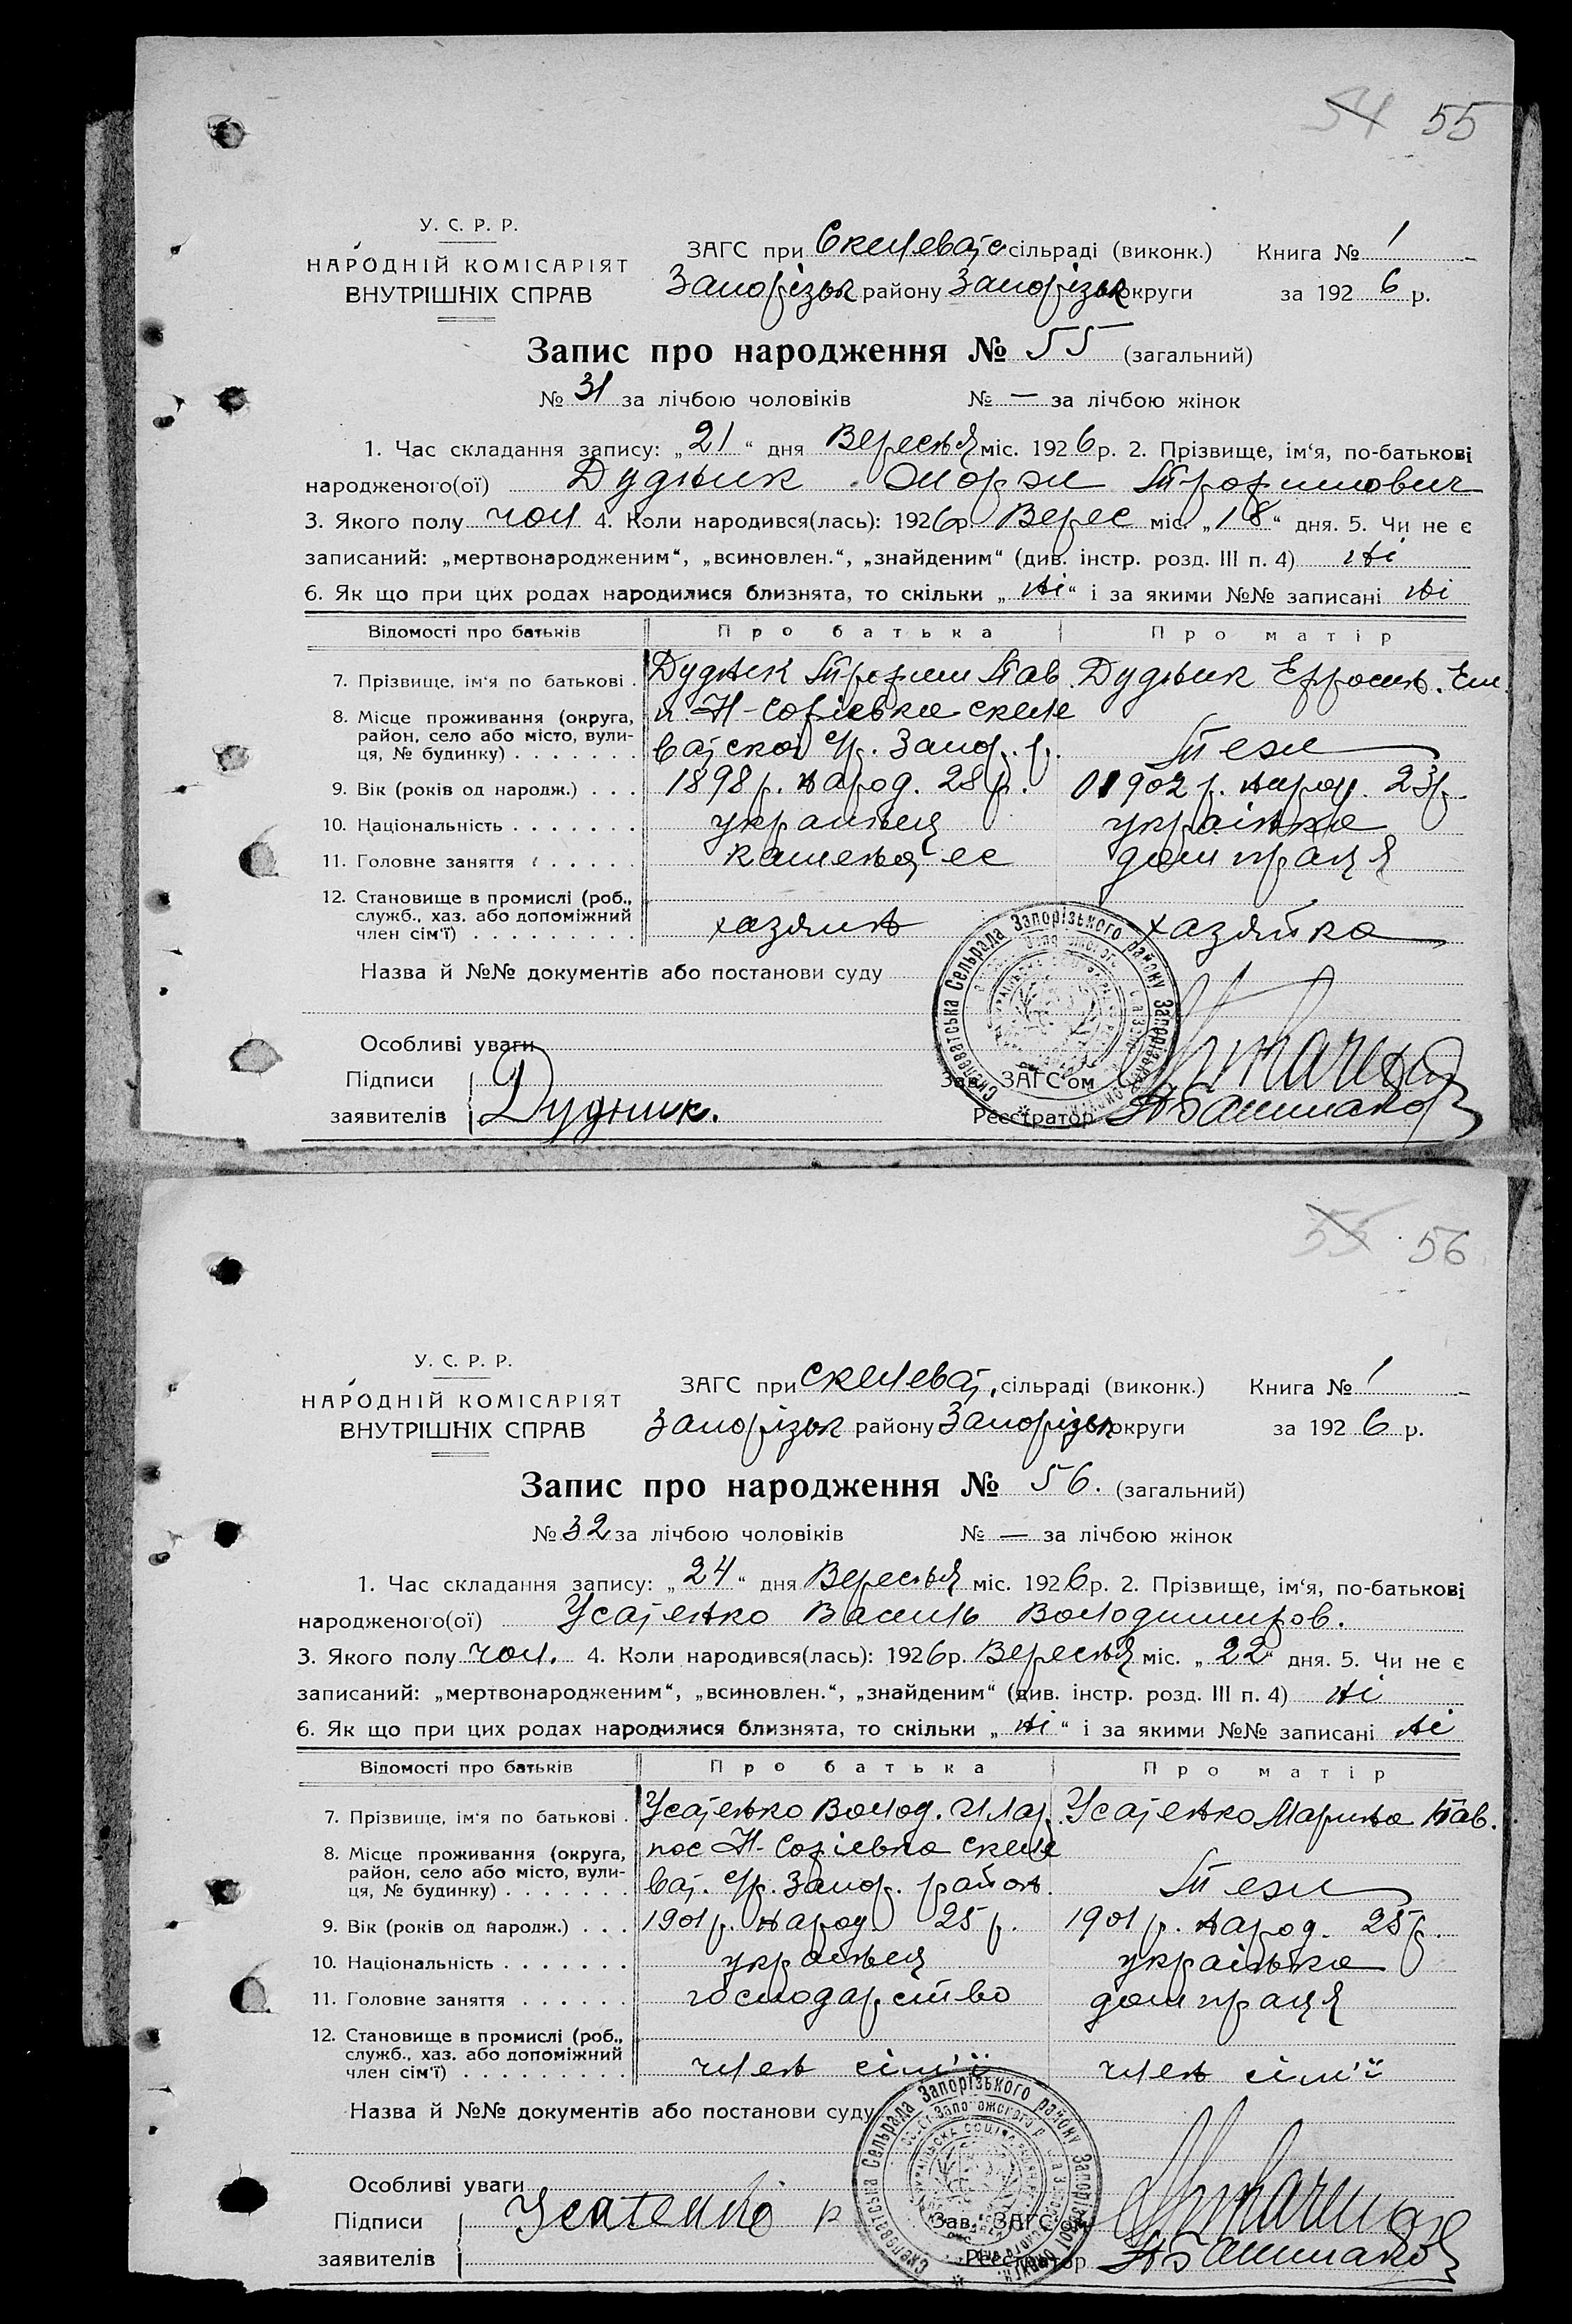 54 55
У. С. Р. Р.
НАРОДНІЙ КОМІСАРІЯТ
ВНУТРІШНІХ СПРАВ
ЗАГС при Скелеват сільраді (виконк.) Книга № 1
Запорізьк району Запорізьк округи за 1926 р.
Запис про народження № 55 (загальний)
№ 31 за лічбою чоловіків № — за лічбою жінок
1. Час складання запису: „21“ дня Вересня міс. 1926 р. 2. Прізвище, ім‘я, по-батькові
народженого(ої) Дудник Жорж Трофимович
3. Якого полу чол 4. Коли народився(лась): 1926р. Верес міс. „18“ дня. 5. Чи не є
записаний: „мертвонародженим“, „всиновлен.“, „знайденим“ (див. інстр. розд. III п. 4) ні
6. Як що при цих родах народилися близнята, то скільки „ні“ і за якими №№ записані ні
Відомості про батьків Про батька Про матір
7. Прізвище, ім‘я по батькові . Дудник Трофим Пав. Дудник Ефросин. Єм.
8. Місце проживання (округа, район, село або місто, вулиця, № будинку) . . . . . . . п. Н-Софіевка Скеле
ватской с/р. Запор. р. Теж
9. Вік (років од народж.) . . . 1898 р. народ. 28 р. 1902 р. народ. 23 р.
10. Національність . . . . . . . українец українка
11. Головне заняття . . . . . . дом праця
12. Становище в промислі (роб., служб., хаз. або допоміжний член сім‘ї) . . . . . . . . . хазяин хазяйка
Назва й №№ документів або постанови суду
Особливі уваги
Підписи
заявителів Дудник.
Зав. ЗАГС‘ом
Реєстратор
Скелеватська Сельрада Запорізького району Запорізької округи
55 56
У. С. Р. Р.
НАРОДНІЙ КОМІСАРІЯТ
ВНУТРІШНІХ СПРАВ
ЗАГС при Скелеват. сільраді (виконк.) Книга № 1
Запорізьк району Запорізьк округи за 1926 р.
Запис про народження № 56. (загальний)
№ 32 за лічбою чоловіків № — за лічбою жінок
1. Час складання запису: „24“ дня Вересня міс. 1926 р. 2. Прізвище, ім‘я, по-батькові
народженого(ої) Усатенко Василь Володимиров.
3. Якого полу чол. 4. Коли народився(лась): 1926р. Вересня міс. „22“ дня. 5. Чи не є
записаний: „мертвонародженим“, „всиновлен.“, „знайденим“ (див. інстр. розд. III п. 4) ні
6. Як що при цих родах народилися близнята, то скільки „ні“ і за якими №№ записані ні
Відомості про батьків Про батька Про матір
7. Прізвище, ім‘я по батькові . Усатенко Волод. Илар. Усатенко Марина Пав.
8. Місце проживання (округа, район, село або місто, вулиця, № будинку) . . . . . . . пос Н-Софіевка Скеле
ват. с/р. Запор. район. Теж
9. Вік (років од народж.) . . . 1901 р. народ 25 р. 1901 р. народ. 25 р.
10. Національність . . . . . . . українец українка
11. Головне заняття . . . . . . господарство дом праця
12. Становище в промислі (роб., служб., хаз. або допоміжний член сім‘ї) . . . . . . . . . член сім'ї член сім'ї
Назва й №№ документів або постанови суду
Особливі уваги
Підписи Усатенко
заявителів
Зав. ЗАГС‘ом
Реєстратор
Скелеватська Сельрада Запорізького району Запорізької округи